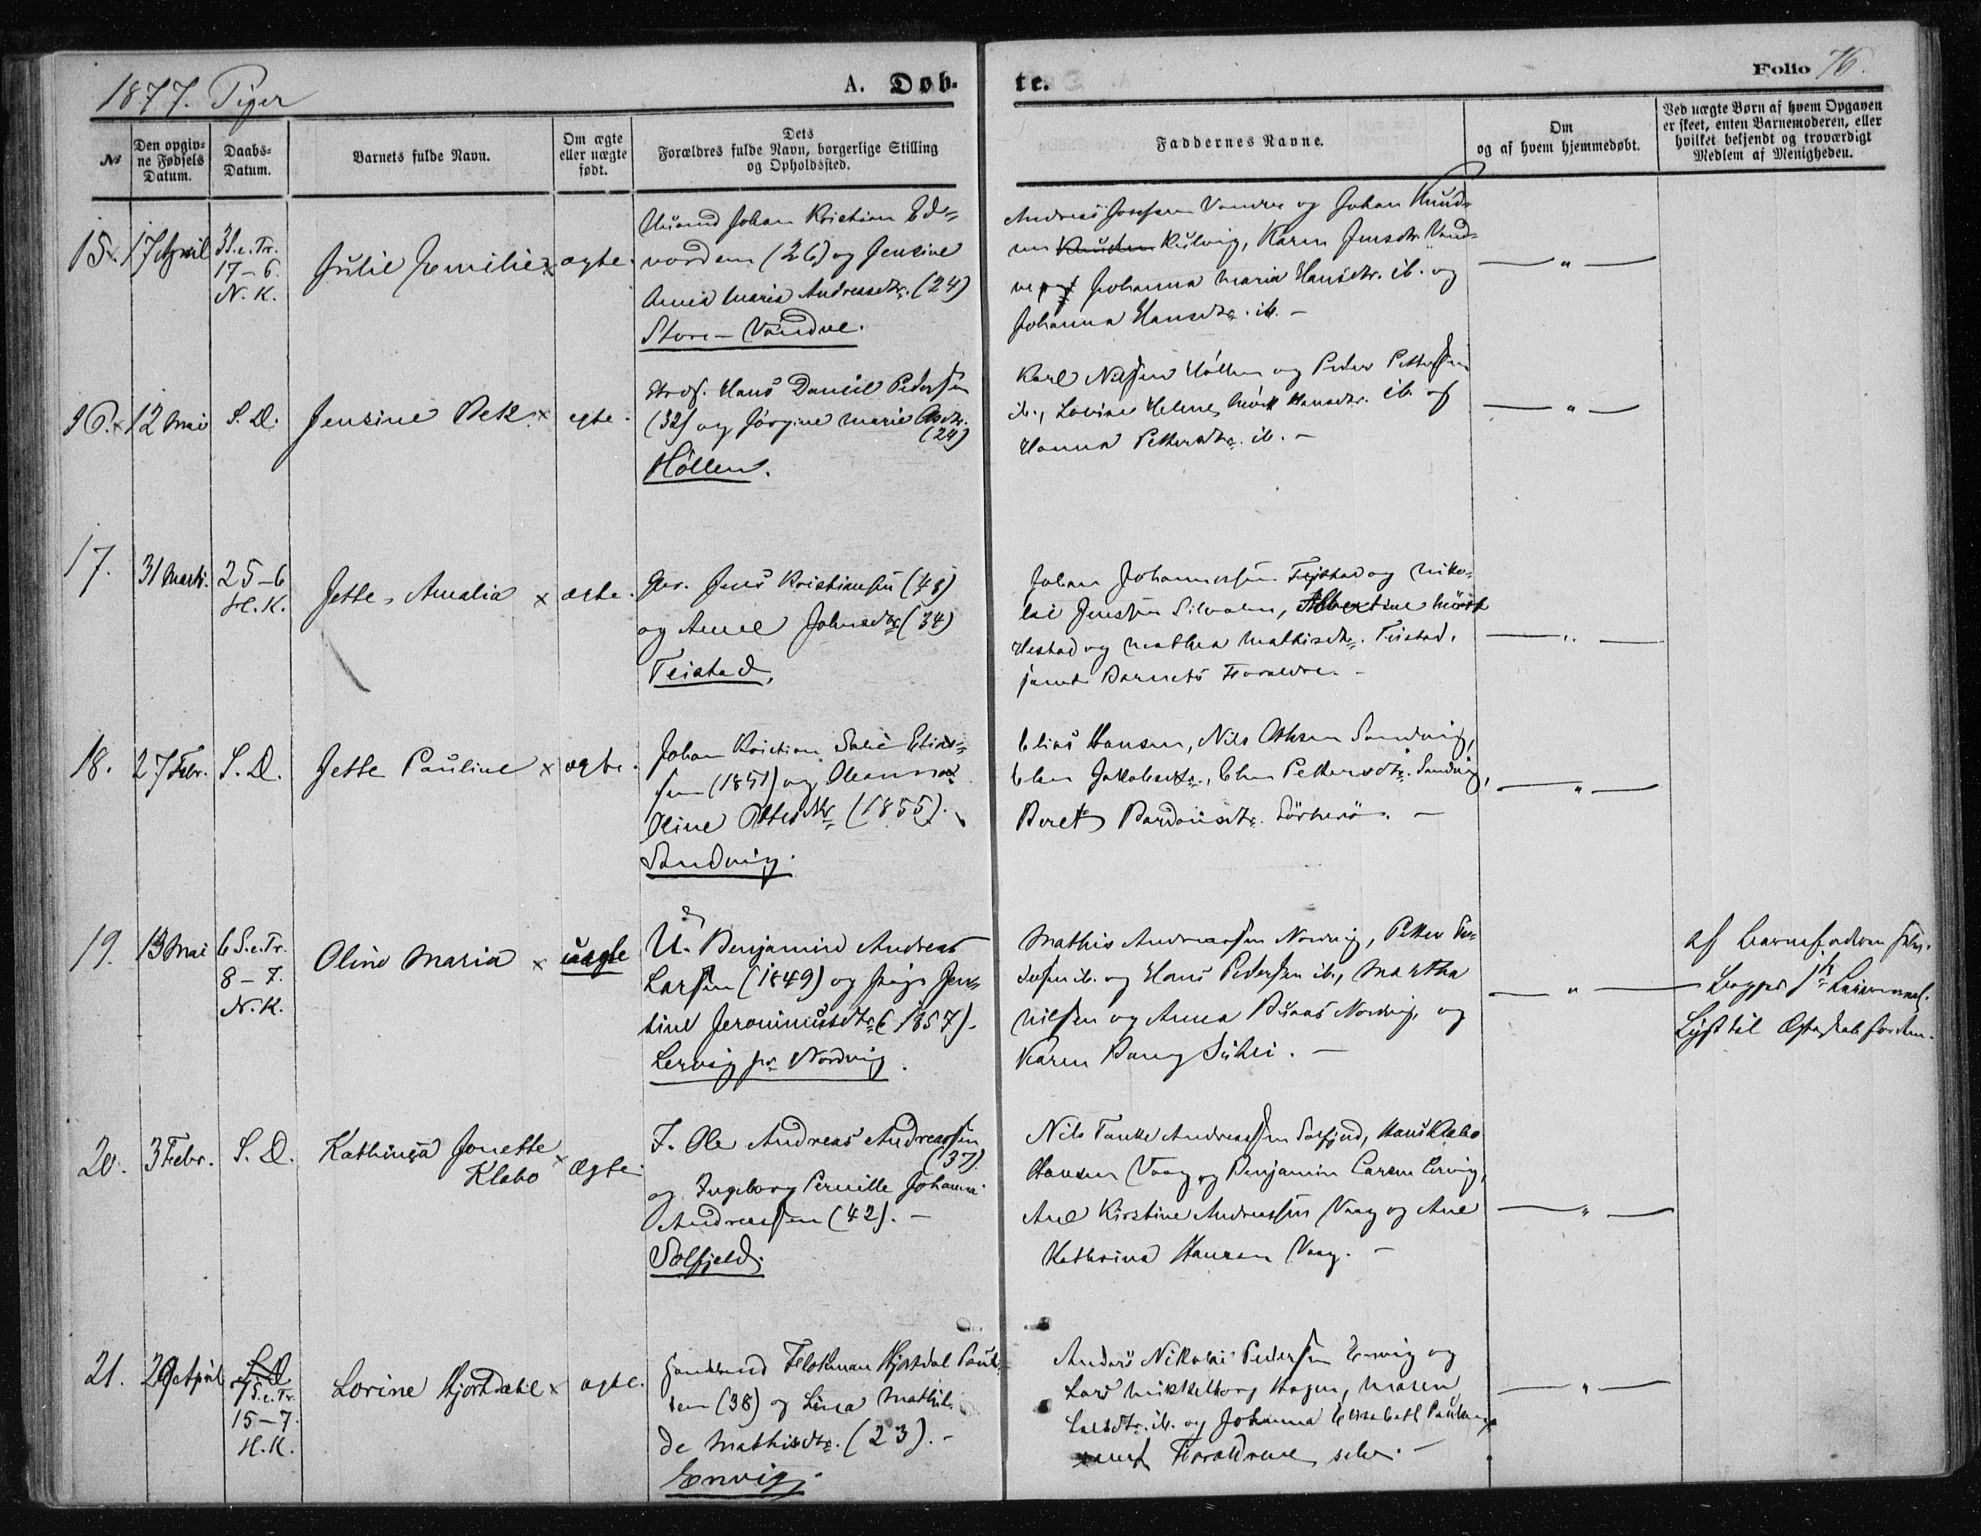 1877. Piger
A. Døb-
te.
Folio 76.
№
Den opgiv-
ne Fødsels
Datum.
Daabs-
Datum.
Barnets fulde Navn.
Om ægte
eller uægte
født.
Dets
Forældres fulde Navn, borgerlige Stilling
og Opholdssted.
Faddernes Navne.
Om
og af hvem hjemmedøbt.
Ved uægte Børn af hvem Opgaven
er skeet, enten Barnemoderen, eller
hvilket bekjendt og troværdigt
Medlem af Menigheden.
15.
17 April
3 S. e. Tr.
17-6.
N. K.
Julie Emilie
ægte.
Johan Kristian Ed-
vardsen (26) og Jensine
Anna Maria Andreasdtr. (24)
Store-Vandve.
Andreas Vandve og Johan Knud-
sen Knudsen Rulvig, Karen Jensdtr. Vand-
ve og Johanna Maria Hansdtr. ib. og
Johanna Hansdtr. ib. -
16.
12 Mai
S. D.
Jensine Bek
egte.
Hans Daniel Pedersen
(32) og Jørgine Marie
(24)
Høllen.
Karl Nilsen Høllen og Peder Pettersen
ib., Hansdtr. ib. og
Hanna Pettersdtr. ib. -
17.
31 Marts.
25-6
H. K.
Jette Amalia
ægte.
Jens Kristiansen (48)
og Anne Johnsdtr (34)
Teistad.
Johan Johannessen Teistad og Niko-
lai Jenssen Silvalen, Albertine Mörk
Hestad og Mathea Mathisdtr. Teistad,
samt Barnets Forældre. -
18.
27 Febr.
S. D.
Jette Pauline
ægte.
Johan Kristian Elias-
sen (1851) og Oleanna
Oline Ottesdtr (1855).
Sandvig.
Elias Hansen, Nils Othsen Sandvig,
Elen Jakobsdtr., Elen Pettersdtr. Sandvig,
Beret Bardonsdtr. Sörherö. -
19.
13 Mai
6 S. e. Tr.
8-7.
N. K.
Oline Maria
uægte
U. Benjamin Andreas
Larsen (1849) og Pige Jen-
sine Jeronimusdtr (1857).
Lervig pr Nordvig.
Mathis Andreassen Nordvig, Petter
ib. og Hans Pedersen ib., Martha
Nilsen og Anna Nordvig og
Karen Bang. -
af Barnefaderen
Lyst til Ægteskab
20.
3 Febr.
S. D.
Kathinga Jonette
Klæbo
Ægte.
I. Ole Andreas Andreassen
(37)
og Ingeborg Pernille Johanna
Andreassen (42). -
Solfjeld.
Nils Andreassen Solfjeld, Hans Klæbo
Hansen Vaag og Benjamin Larsen Lervig,
Ane Kirstine Andreassen Vaag og Ane
Kathrina Hansen Vaag. -
21.
29 April
S. D.
7 S. e. Tr.
15-7.
H. K.
Lorine Hjortdahl
ægte.
Hjortdal Paul-
sen (38) og Lina Mathil-
de Mathisdtr. (23). -
Envig.
Anders Nikolai Pedersen Envig og
Lars Mikkelborg Hagen, Maren
Larsdtr. ib. og Johanna Elisabeth Paulsen
samt Forældrene selv. -